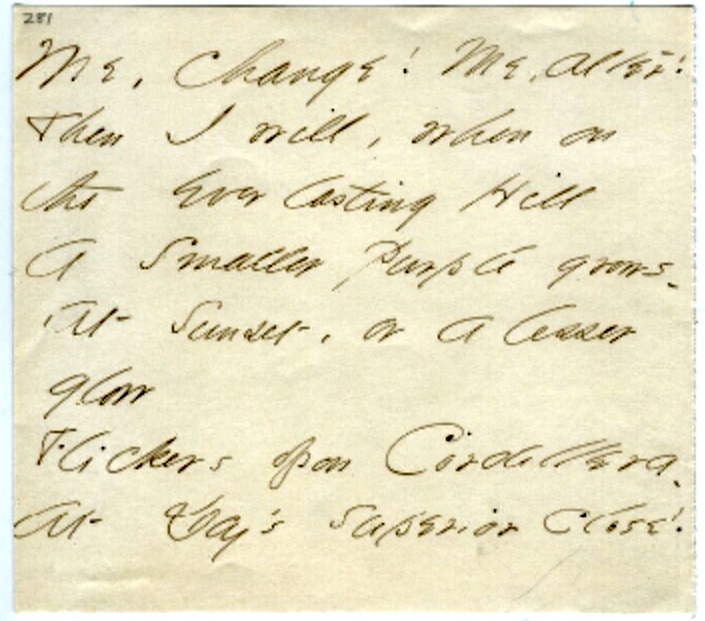 281
Me, Change! Me, alter!
Then I will, when on
the Everlasting Hill
A Smaller Purple grows -
At Sunset, or a lesser
glow
Flickers upon Cordillera -
At Day's superior close!